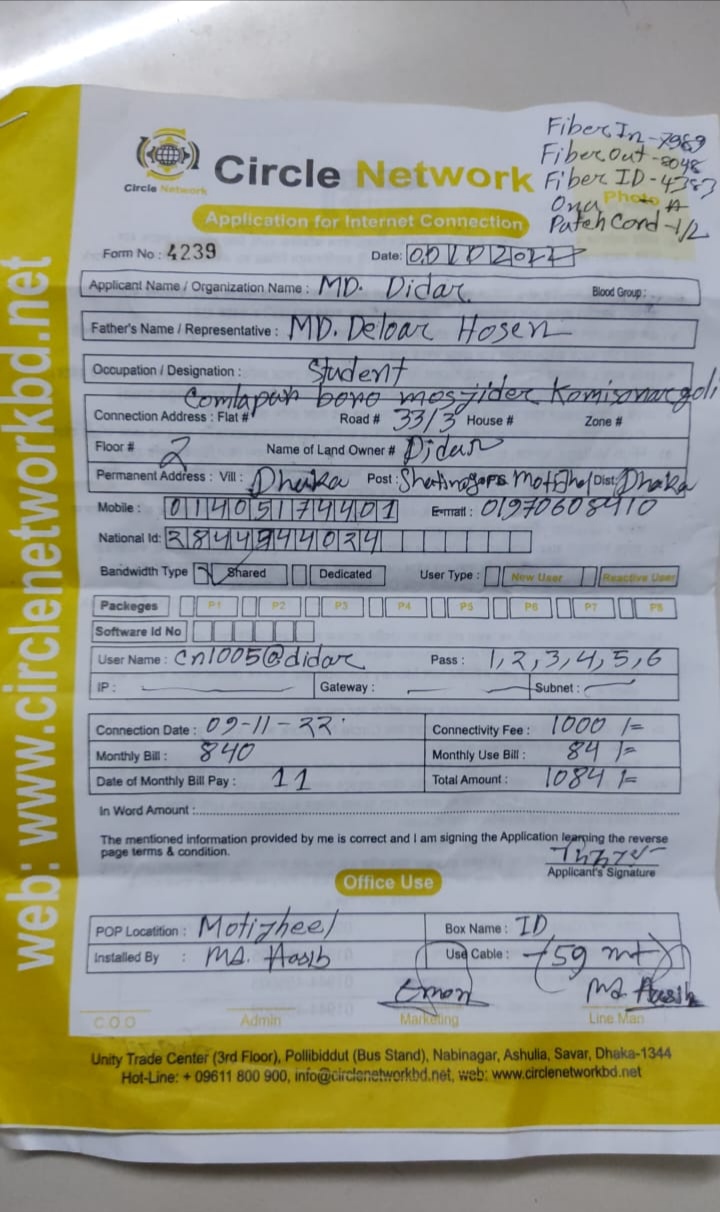 Fiber In - 7969
Fiber Out - 8048
Fiber ID - 4383
Onu Photo A
Patch Cord - 1/2
Circle Network
Circle Network
Application for Internet Connection
Form No : 4239 Date:
Applicant Name / Organization Name : MD. Didar Blood Group :
Father's Name / Representative : MD. Deloar Hosen
Occupation / Designation : Student
Comlapur boro mosjider Komisonargoli
Connection Address : Flat # Road # 33/3 House # Zone #
Floor # 2 Name of Land Owner # Didar
Permanent Address : Vill : Dhaka Post : P.S Dist: Dhaka
Mobile : 01405174401 E-mail : 01970608410
National Id:
Bandwidth Type Shared Dedicated User Type : New User Reactive User
Packeges P1 P2 P3 P4 P5 P6 P7 P8
Software Id No
User Name : cn1005@didar Pass : 1,2,3,4,5,6
IP : Gateway : Subnet :
Connection Date : 09-11-22 Connectivity Fee : 1000 /=
Monthly Bill : 840 Monthly Use Bill : 84 /=
Date of Monthly Bill Pay : 11 Total Amount : 1084 /=
In Word Amount :
The mentioned information provided by me is correct and I am signing the Application learning the reverse
page terms & condition.
Applicant's Signature
Office Use
POP Locatition : Motijheel Box Name : ID
Installed By : MD. Hasib Use Cable : 59 mt
Emon MD Hasib
C.O.O Admin Marketing Line Man
Unity Trade Center (3rd Floor), Pollibiddut (Bus Stand), Nabinagar, Ashulia, Savar, Dhaka-1344
Hot-Line: + 09611 800 900, info@circlenetworkbd.net, web: www.circlenetworkbd.net
web: www.circlenetworkbd.net